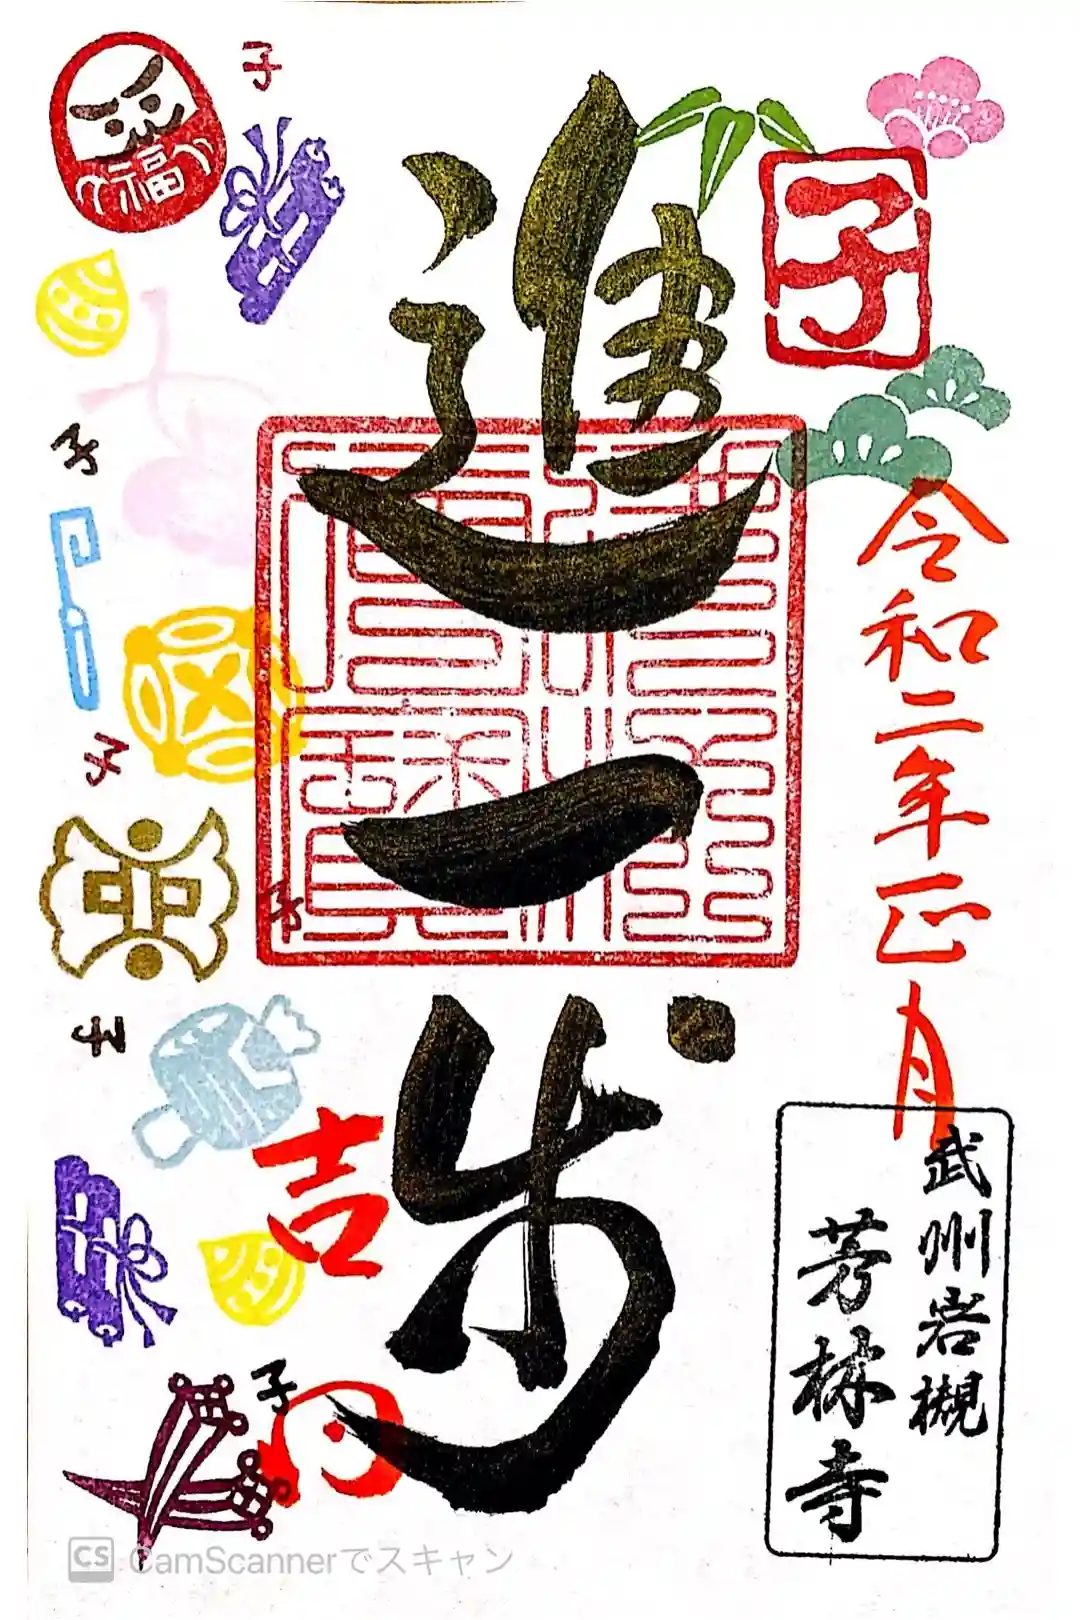 子
令和二年正月
進一歩
武州岩槻
芳林寺
福
子
子
子
子
子
吉
日
子
CS CamScannerでスキャン